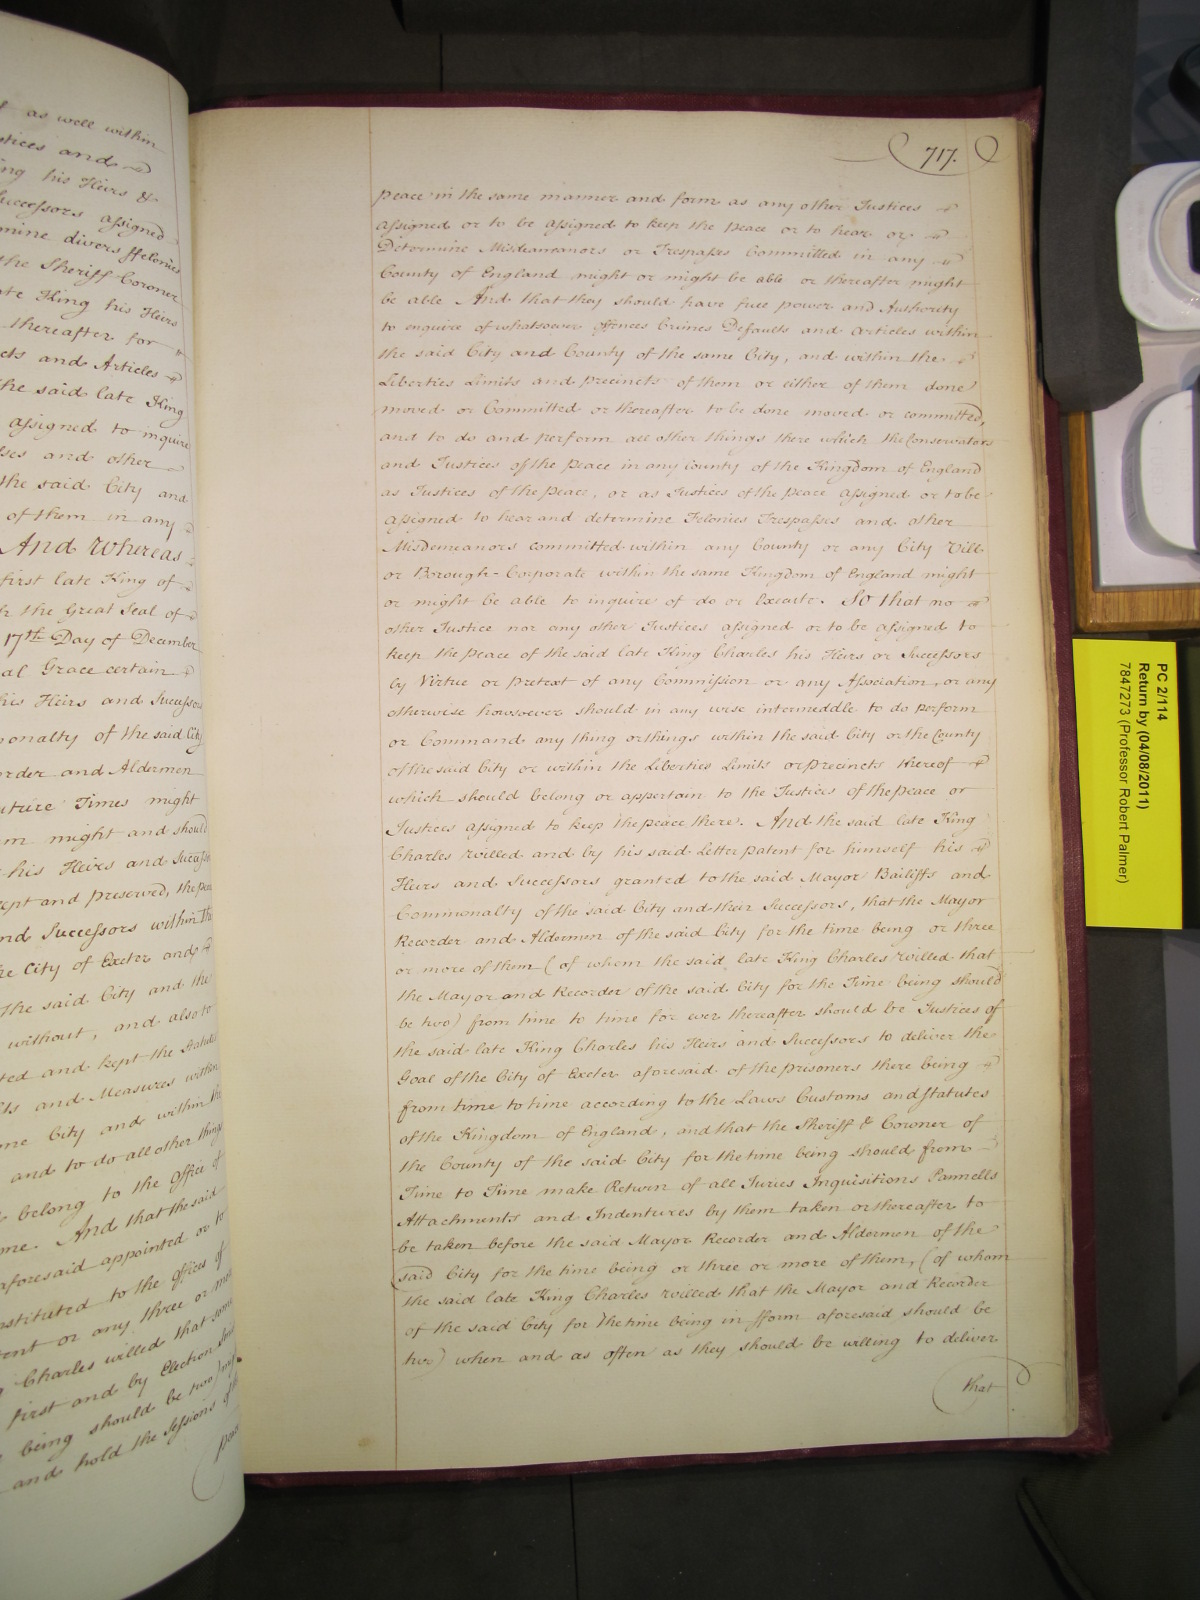 f as well within
stices and
ing his Heirs &
Successors assigned
mine divers ffelonies
the Sheriff Coroner
ate King his Heirs
thereafter for
cts and Articles
the said late King
assigned to inquire
ses and other
the said City and
of them in any
And Whereas
first late King of
r the Great Seal of
17th Day of December
al Grace certain
his Heirs and Successors
onalty of the said City
order and Aldermen
uture Times might
m might and should
his Heirs and Success
ept and preserved, the pea
nd Successors within the
he City of Exeter and
the said City and the
without, and also to
ted and kept the Statutes
ts and Measures within
me City and within the
and to do all other things
belong to the Office of
me. And that the said
aforesaid appointed or to
nstituted to the Offices of
ent or any three or more
g Charles willed that some
first and by Election
being should be two)
and hold the Sessions of the
peace
717.
peace in the same manner and form as any other Justices
assigned or to be assigned to keep the peace or to hear or
Determine Misdemeanors or Trespasses Committed in any
County of England might or might be able or thereafter might
be able And that they should have full power and Authority
to enquire of whatsoever offences Crimes Defaults and Articles within
the said City and County of the same City, and within the
Liberties Limits and precincts of them or either of them done
moved or Committed or thereafter to be done moved or committed,
and to do and perform all other things there which the Conservators
and Justices of the peace in any County of the Kingdom of England
as Justices of the peace, or as Justices of the peace assigned or to be
assigned to hear and determine Felonies Trespasses and other
Misdemeanors committed within any County or any City Vill
or Borough-Corporate within the same Kingdom of England might
or might be able to inquire of do or Execute. So that no
other Justice nor any other Justices assigned or to be assigned to
keep the peace of the said late King Charles his Heirs or Successors
by Virtue or pretext of any Commission or any Association, or any
otherwise howsoever should in any wise intermeddle to do perform
or Command any thing or things within the said City or the County
of the said City or within the Liberties Limits or precincts thereof
which should belong or appertain to the Justices of the peace or
Justices assigned to keep the peace there. And the said late King
Charles willed and by his said Letter patent for himself his
Heirs and Successors granted to the said Mayor Bailiffs and
Commonalty of the said City and their Successors, that the Mayor
Recorder and Aldermen of the said City for the time being or three
or more of them (of whom the said late King Charles willed that
the Mayor and Recorder of the said City for the Time being should
be two) from time to time for ever thereafter should be Justices of
the said late King Charles his Heirs and Successors to deliver the
Goal of the City of Exeter aforesaid of the prisoners there being
from time to time according to the Laws Customs and Statutes
of the Kingdom of England, and that the Sheriff & Coroner of
the County of the said City for the time being should from
Time to Time make Return of all Juries Inquisitions Pannells
Attachments and Indentures by them taken or thereafter to
be taken before the said Mayor Recorder and Aldermen of the
said City for the time being or three or more of them, (of whom
the said late King Charles willed that the Mayor and Recorder
of the said City for the time being in fform aforesaid should be
two) when and as often as they should be willing to deliver
that
PC 2/114
Return by (04/08/2011)
7847273 (Professor Robert Palmer)